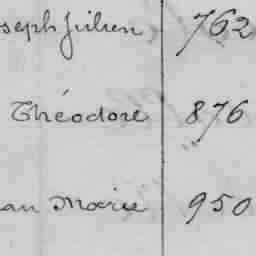 oseph Julien 762
Théodore 876
an Marie 950